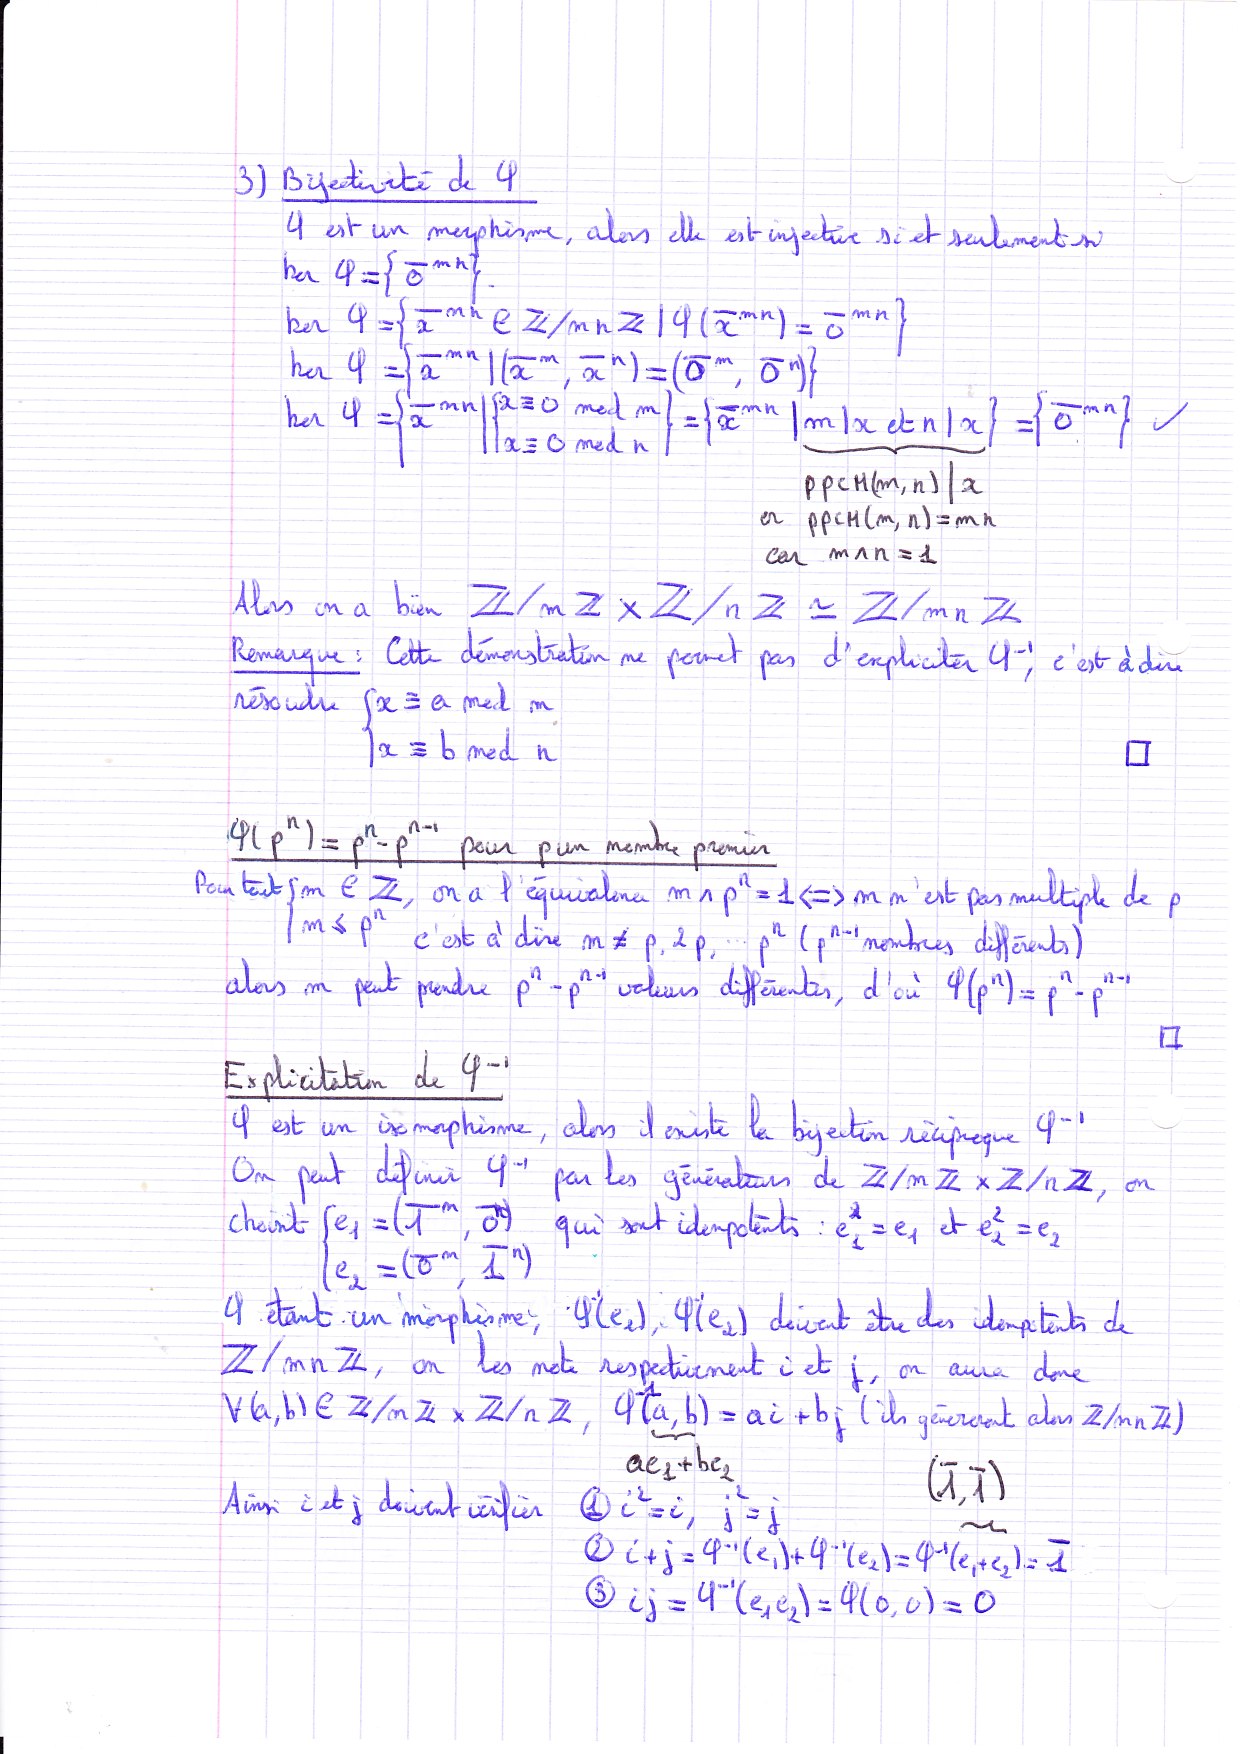 3) Bijectivité de φ
φ est un morphisme, alors elle est injective si et seulement si
ker φ = { 0̅^mn }.
ker φ = { x̅^mn ∈ ℤ/mnℤ | φ(x̅^mn) = 0̅^mn }
ker φ = { x̅^mn | (x̅^m, x̅^n) = (0̅^m, 0̅^n) }
ker φ = { x̅^mn | { x ≡ 0 mod m
x ≡ 0 mod n } = { x̅^mn | m | x et n | x } = { 0̅^mn } ✓
ppcM(m, n) | x
or ppcM(m, n) = mn
car m ∧ n = 1
Alors on a bien ℤ/mℤ × ℤ/nℤ ≃ ℤ/mnℤ
Remarque : Cette démonstration ne permet pas d'expliciter φ⁻¹, c'est à dire
résoudre { x ≡ a mod m
x ≡ b mod n □
φ(pⁿ) = pⁿ - pⁿ⁻¹ pour p un nombre premier
Pour tout { m ∈ ℤ, on a l'équivalence m ∧ pⁿ = 1 <=> m n'est pas multiple de p
m ≤ pⁿ c'est à dire m ≠ p, 2p, ... pⁿ (pⁿ⁻¹ nombres différents)
alors m peut prendre pⁿ - pⁿ⁻¹ valeurs différentes, d'où φ(pⁿ) = pⁿ - pⁿ⁻¹
□
Explicitation de φ⁻¹
φ est un isomorphisme, alors il existe la bijection réciproque φ⁻¹
On peut définir φ⁻¹ par les générateurs de ℤ/mℤ × ℤ/nℤ, on
choisit { e₁ = (1̅^m, 0̅^n) qui sont idempotents : e₁² = e₁ et e₂² = e₂
e₂ = (0̅^m, 1̅^n)
φ étant un morphisme, φ⁻¹(e₁), φ⁻¹(e₂) doivent être des idempotents de
ℤ/mnℤ, on les note respectivement i et j, on aura donc
∀(a, b) ∈ ℤ/mℤ × ℤ/nℤ, φ⁻¹(a, b) = ai + bj (ils génèreront alors ℤ/mnℤ)
ae₁ + be₂
(1̅, 1̅)
Ainsi i et j doivent vérifier ① i² = i, j² = j
② i + j = φ⁻¹(e₁) + φ⁻¹(e₂) = φ⁻¹(e₁ + e₂) = 1̅
③ ij = φ⁻¹(e₁e₂) = φ(0, 0) = 0